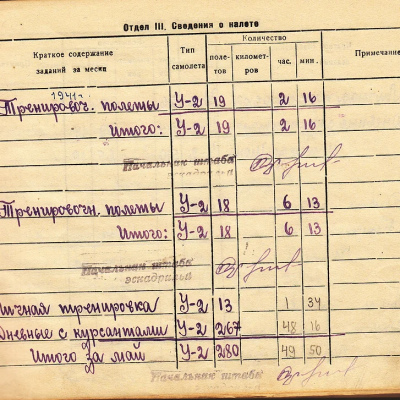 Отдел III. Сведения о налете
Краткое содержание заданий за месяц
Тип самолета
Количество
поле-тов
километ-ров
час.
мин.
Примечание
1941г.
Тренировоч. полеты У-2 19 2 16
Итого: У-2 19 2 16
Начальник штаба
эскадрильи
Тренировочн. полеты У-2 18 6 13
Итого: У-2 18 6 13
Начальник штаба
эскадрильи
ичная тренировка У-2 13 1 34
Дневные с курсантами У-2 267 48 16
Итого за май У-2 280 49 50
Начальник штаба